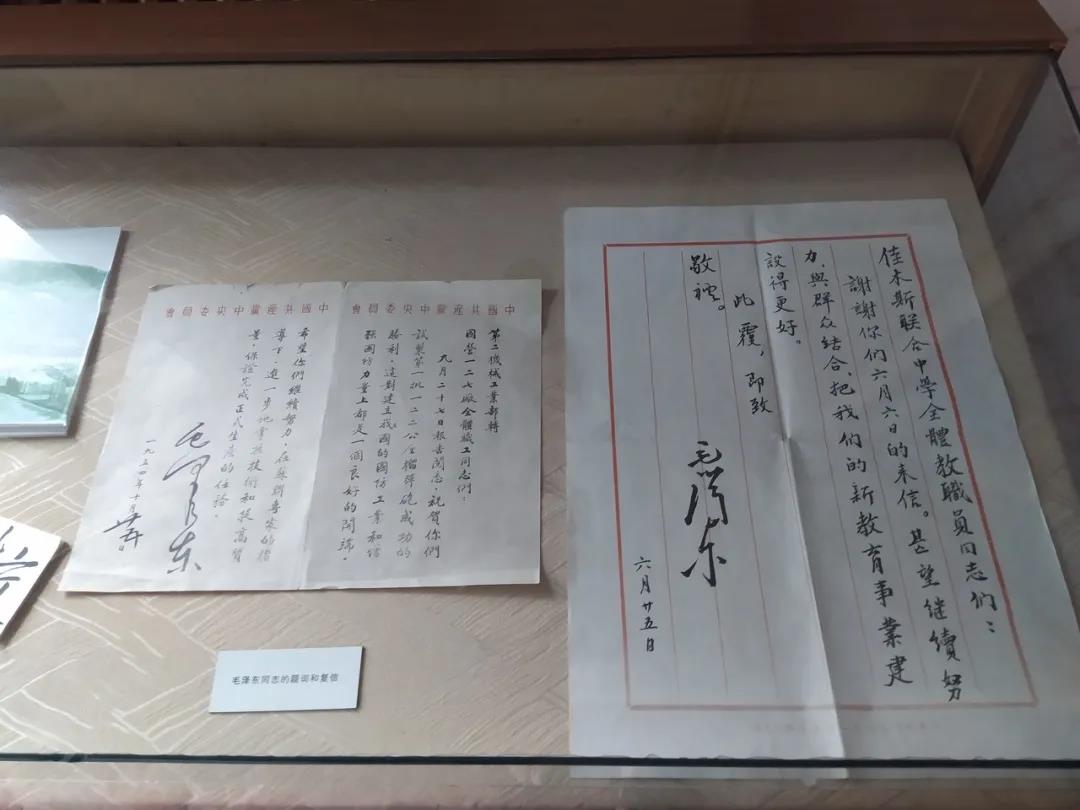 中國共産黨中央委員會
中國共産黨中央委員會
第二機械工業部轉
國营一二七廠全體職工同志們：
九月二十七日報告閱悉，祝賀你們
試製第一批一二二公厘榴彈砲成功的
勝利。這對建立我國的國防工業和增
强國防力量上都是一個良好的開端。
希望你們繼續努力，在蘇聯專家的指
導下，進一步地掌握技術和提高質
量，保證完成正式生産的任務。
毛澤東
一九五四年十月廿五日
毛泽东同志的题词和复信
佳木斯联合中学全體教職員同志们：
謝謝你们六月六日的来信。甚望继續努
力，與群众结合，把我们的新教育事業建
設得更好。
此覆，即致
敬禮。
毛澤东
六月廿五日